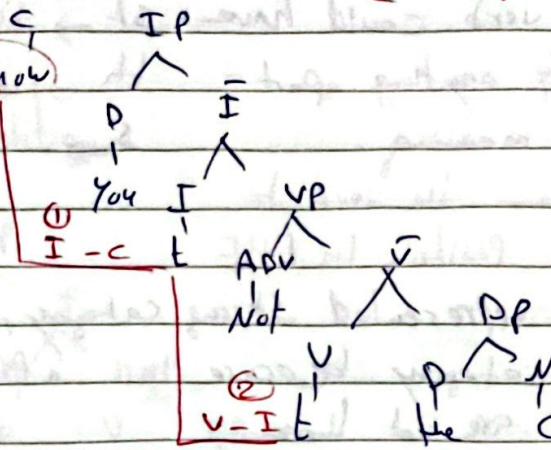 C IP
now
D Ī
You I VP
①
I - C t ADV V̄
Not DP
V D N
②
V - I t the